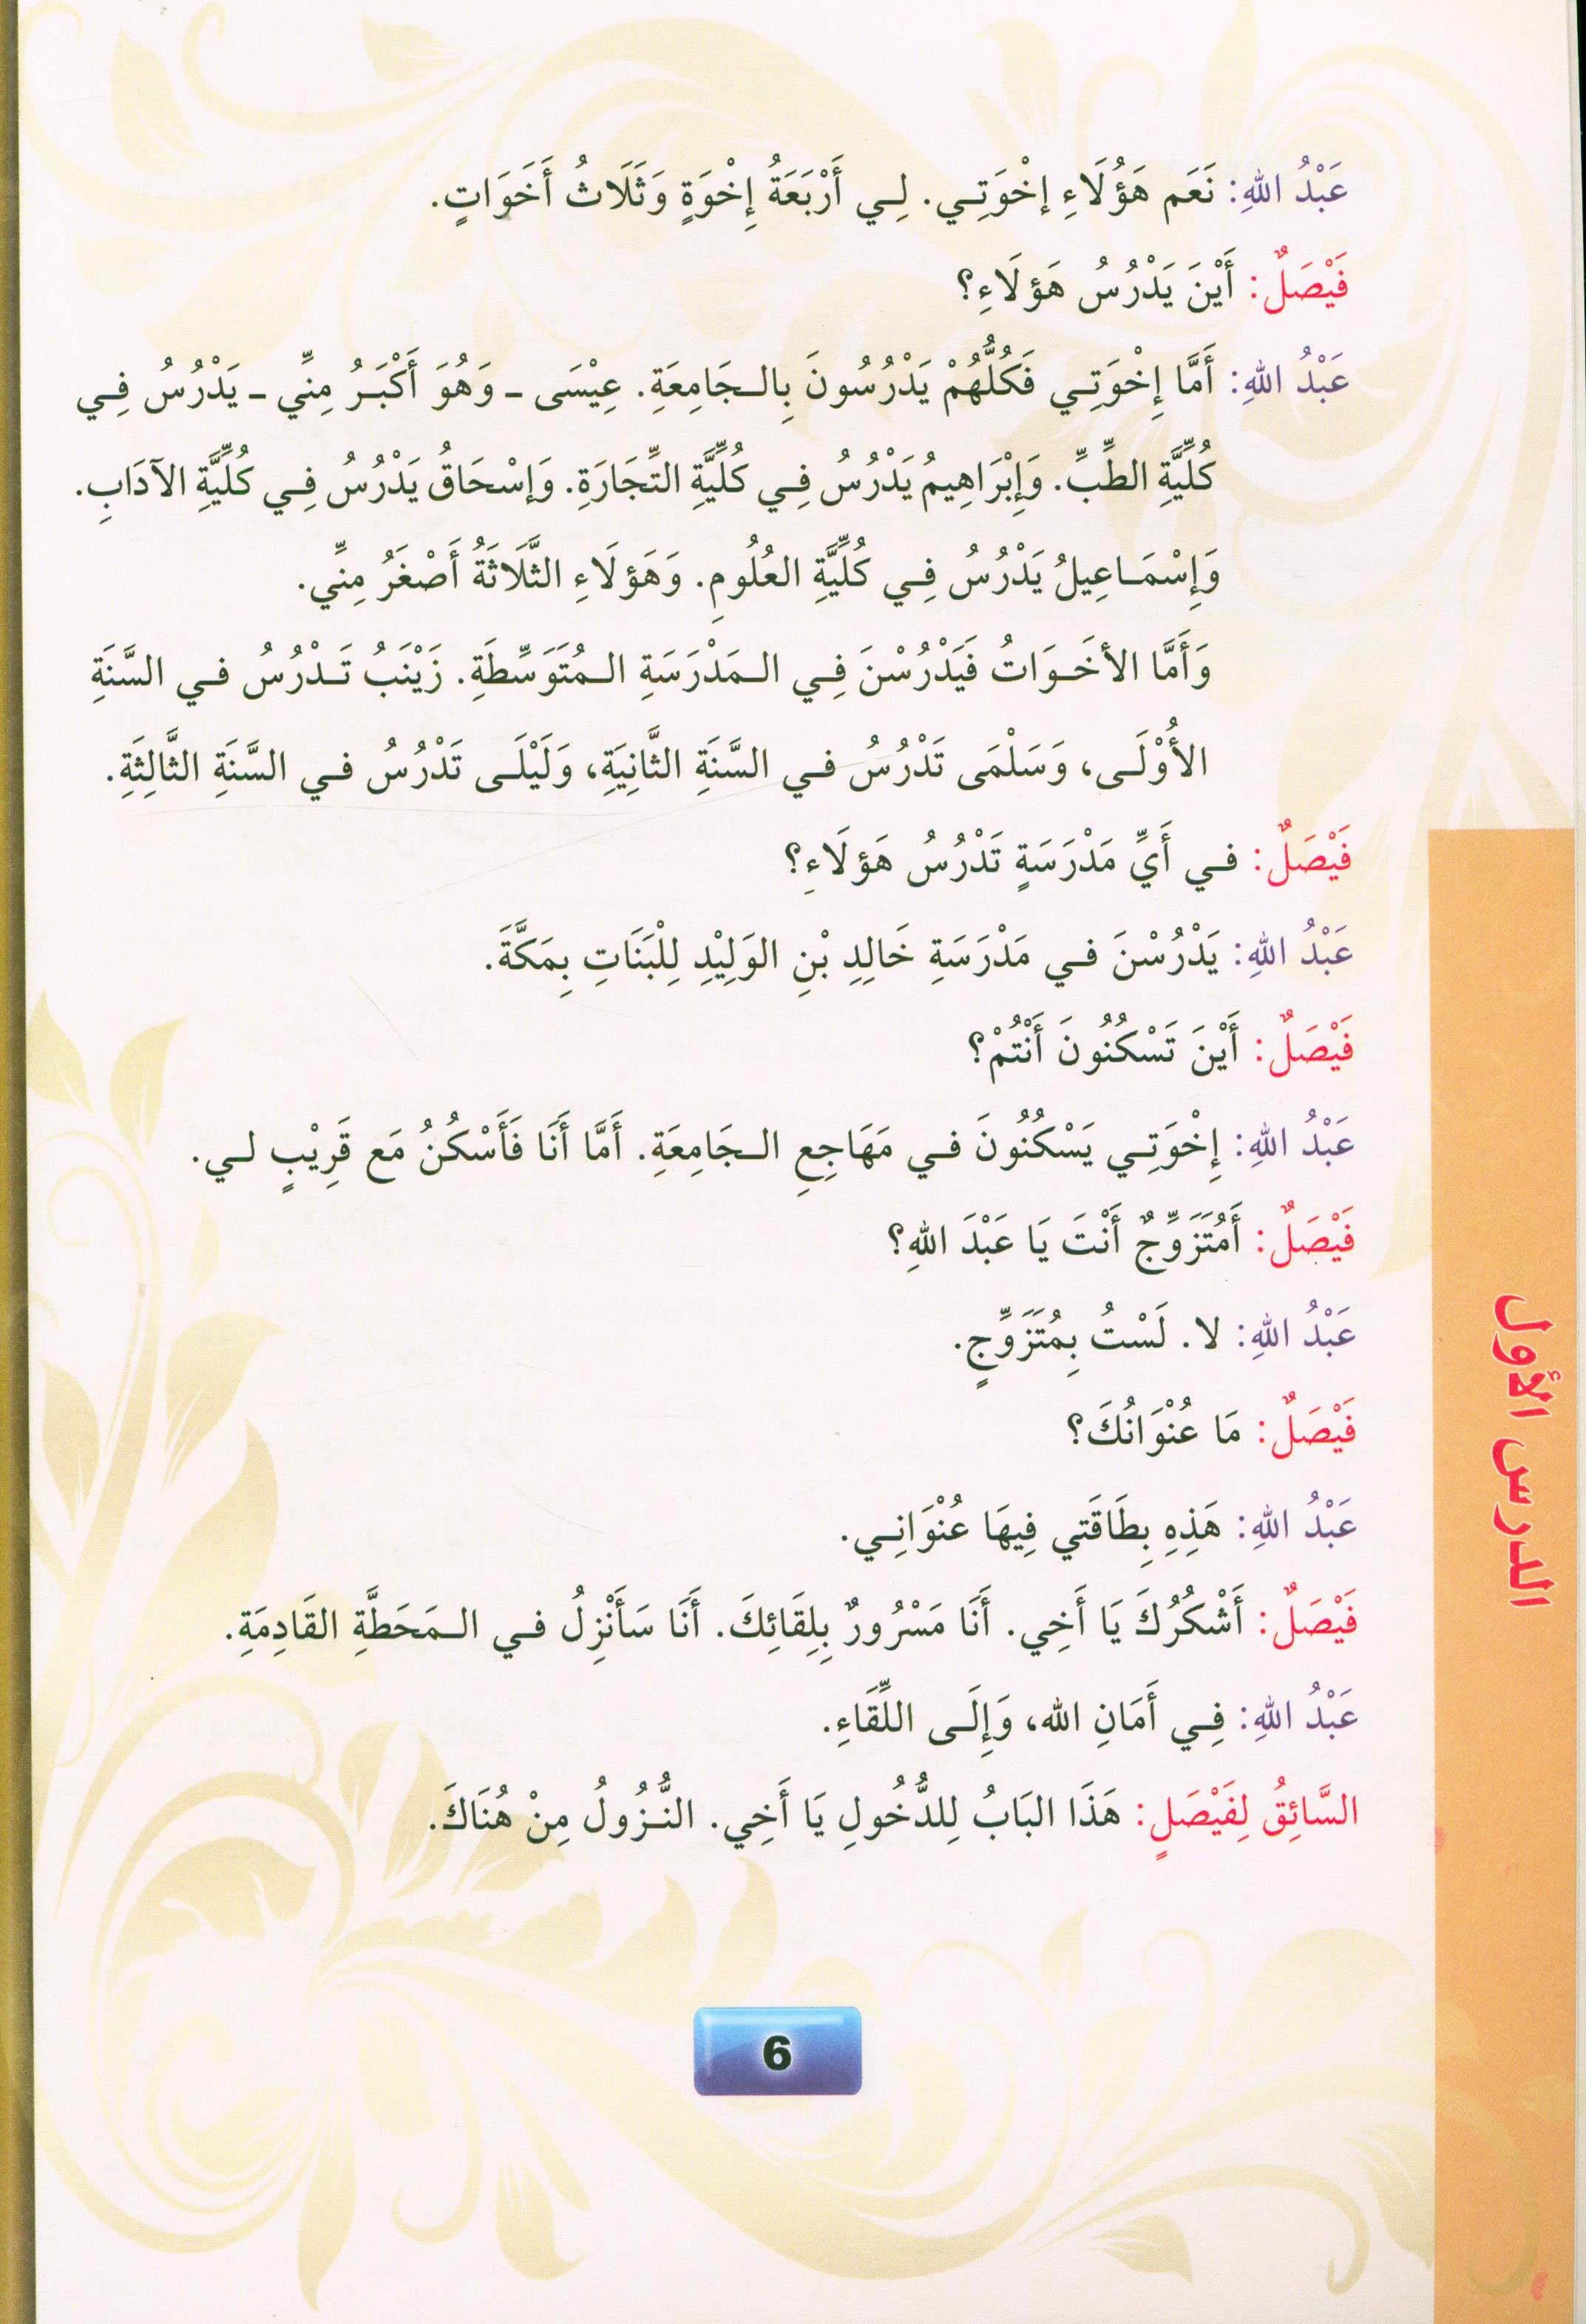 عَبْدُ اللهِ: نَعَم هَؤُلَاءِ إخْوَتِي. لِي أَرْبَعَةُ إِخْوَةٍ وَثَلَاثُ أَخَوَاتٍ.
فَيْصَلٌ: أَيْنَ يَدْرُسُ هَؤلَاءِ؟
عَبْدُ اللهِ: أَمَّا إِخْوَتِي فَكُلُّهُمْ يَدْرُسُونَ بِالجَامِعَةِ. عِيْسَى - وَهُوَ أَكْبَرُ مِنِّي - يَدْرُسُ فِي
كُلِّيَّةِ الطِّبِّ. وَإِبْرَاهِيمُ يَدْرُسُ فِي كُلِّيَّةِ التِّجَارَةِ. وَإسْحَاقُ يَدْرُسُ فِي كُلِّيَّةِ الآدَابِ.
وَإِسْمَاعِيلُ يَدْرُسُ فِي كُلِّيَّةِ العُلُومِ. وَهَؤلَاءِ الثَّلَاثَةُ أَصْغَرُ مِنِّي.
وَأَمَّا الأخَوَاتُ فَيَدْرُسْنَ فِي المَدْرَسَةِ المُتَوَسِّطَةِ. زَيْنَبُ تَدْرُسُ في السَّنَةِ
الأُوْلَى، وَسَلْمَى تَدْرُسُ في السَّنَةِ الثَّانِيَةِ، وَلَيْلَى تَدْرُسُ في السَّنَةِ الثَّالِثَةِ.
فَيْصَلٌ: في أَيِّ مَدْرَسَةٍ تَدْرُسُ هَؤلَاءِ؟
عَبْدُ اللهِ: يَدْرُسْنَ في مَدْرَسَةِ خَالِدِ بْنِ الوَلِيْدِ لِلْبَنَاتِ بِمَكَّةَ.
فَيْصَلٌ: أَيْنَ تَسْكُنُونَ أَنْتُمْ؟
عَبْدُ اللهِ: إِخْوَتِي يَسْكُنُونَ في مَهَاجِعِ الجَامِعَةِ. أَمَّا أَنَا فَأَسْكُنُ مَع قَرِيْبٍ لي.
فَيْصَلٌ: أَمُتَزَوِّجٌ أَنْتَ يَا عَبْدَ اللهِ؟
عَبْدُ اللهِ: لا. لَسْتُ بِمُتَزَوِّجٍ.
فَيْصَلٌ: مَا عُنْوَانُكَ؟
عَبْدُ اللهِ: هَذِهِ بِطَاقَتي فِيهَا عُنْوَانِي.
فَيْصَلٌ: أَشْكُرُكَ يَا أَخِي. أَنَا مَسْرُورٌ بِلِقَائِكَ. أَنَا سَأَنْزِلُ في المَحَطَّةِ القَادِمَةِ.
عَبْدُ اللهِ: فِي أَمَانِ الله، وَإِلَى اللِّقَاءِ.
السَّائِقُ لِفَيْصَلٍ: هَذَا البَابُ لِلدُّخُولِ يَا أَخِي. النُّزُولُ مِنْ هُنَاكَ.
الدرس الأول
6